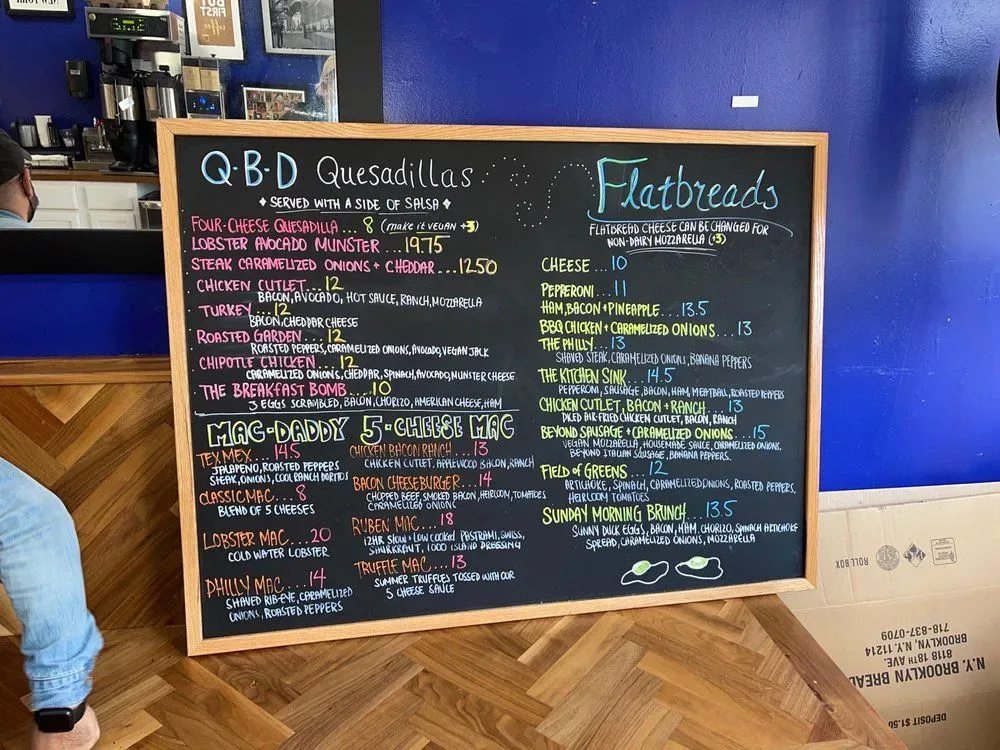 Q·B·D Quesadillas
♦ SERVED WITH A SIDE OF SALSA ♦
FOUR-CHEESE QUESADILLA ... 8 (MAKE IT VEGAN +3)
LOBSTER AVOCADO MUNSTER ... 19.75
STEAK CARAMELIZED ONIONS + CHEDDAR ... 12.50
CHICKEN CUTLET ... 12
BACON, AVOCADO, HOT SAUCE, RANCH, MOZZARELLA
TURKEY ... 12
BACON, CHEDDAR CHEESE
ROASTED GARDEN ... 12
ROASTED PEPPERS, CARAMELIZED ONIONS, AVOCADO, VEGAN JACK
CHIPOTLE CHICKEN ... 12
CARAMELIZED ONIONS, CHEDDAR, SPINACH, AVOCADO, MUNSTER CHEESE
THE BREAKFAST BOMB ... 10
3 EGGS SCRAMBLED, BACON, CHORIZO, AMERICAN CHEESE, HAM
MAC-DADDY 5-CHEESE MAC
TEX MEX ... 14.5
JALAPENO, ROASTED PEPPERS
STEAK, ONIONS, COOL RANCH DORITOS
CLASSIC MAC ... 8
BLEND OF 5 CHEESES
LOBSTER MAC ... 20
COLD WATER LOBSTER
PHILLY MAC ... 14
SHAVED RIB-EYE, CARAMELIZED
ONIONS, ROASTED PEPPERS
CHICKEN BACON RANCH ... 13
CHICKEN CUTLET, APPLEWOOD BACON, RANCH
BACON CHEESEBURGER ... 14
CHOPPED BEEF, SMOKED BACON, HEIRLOOM, TOMATOES
CARAMELIZED ONIONS
RUBEN MAC ... 18
12HR SLOW + LOW COOKED PASTRAMI, SWISS,
SAURKRAUT, 1000 ISLAND DRESSING
TRUFFLE MAC ... 13
SUMMER TRUFFLES TOSSED WITH OUR
5 CHEESE SAUCE
Flatbreads
FLATBREAD CHEESE CAN BE CHANGED FOR
NON-DAIRY MOZZARELLA (+3)
CHEESE ... 10
PEPPERONI ... 11
HAM, BACON + PINEAPPLE ... 13.5
BBQ CHICKEN + CARAMELIZED ONIONS ... 13
THE PHILLY ... 13
SHAVED STEAK, CARAMELIZED ONIONS, BANANA PEPPERS
THE KITCHEN SINK ... 14.5
PEPPERONI, SAUSAGE, BACON, HAM, MEATBALL, ROASTED PEPPERS
CHICKEN CUTLET, BACON + RANCH ... 13
DICED AIR-FRIED CHICKEN CUTLET, BACON, RANCH
BEYOND SAUSAGE + CARAMELIZED ONIONS ... 15
VEGAN MOZZARELLA, HOUSEMADE SAUCE, CARAMELIZED ONIONS,
BEYOND ITALIAN SAUSAGE, BANANA PEPPERS.
FIELD OF GREENS ... 12
ARTICHOKE, SPINACH, CARAMELIZED ONIONS, ROASTED PEPPERS,
HEIRLOOM TOMATOES
SUNDAY MORNING BRUNCH ... 13.5
SUNNY DUCK EGGS, BACON, HAM, CHORIZO, SPINACH ARTICHOKE
SPREAD, CARAMELIZED ONIONS, MOZZARELLA
ROLL BOX
N.Y. BROOKLYN BREAD
8118 18TH AVE.
BROOKLYN, N.Y. 11214
718-837-0709
DEPOSIT $1.50